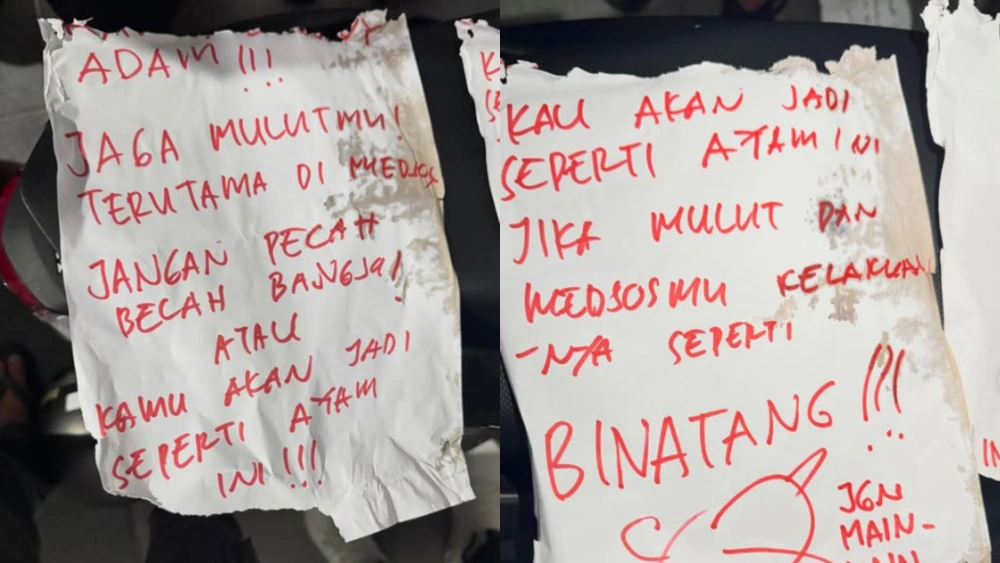 ADAM !!!
JAGA MULUTMU!
TERUTAMA DI MEDSOS
JANGAN PECAH
BECAH BANGSA!
ATAU
KAMU AKAN JADI
SEPERTI AYAM
INI !!!
KAU AKAN JADI
SEPERTI AYAM INI
JIKA MULUT DAN
MEDSOSMU KELAKUAN
-NYA SEPERTI
BINATANG !!!
JGN
MAIN-